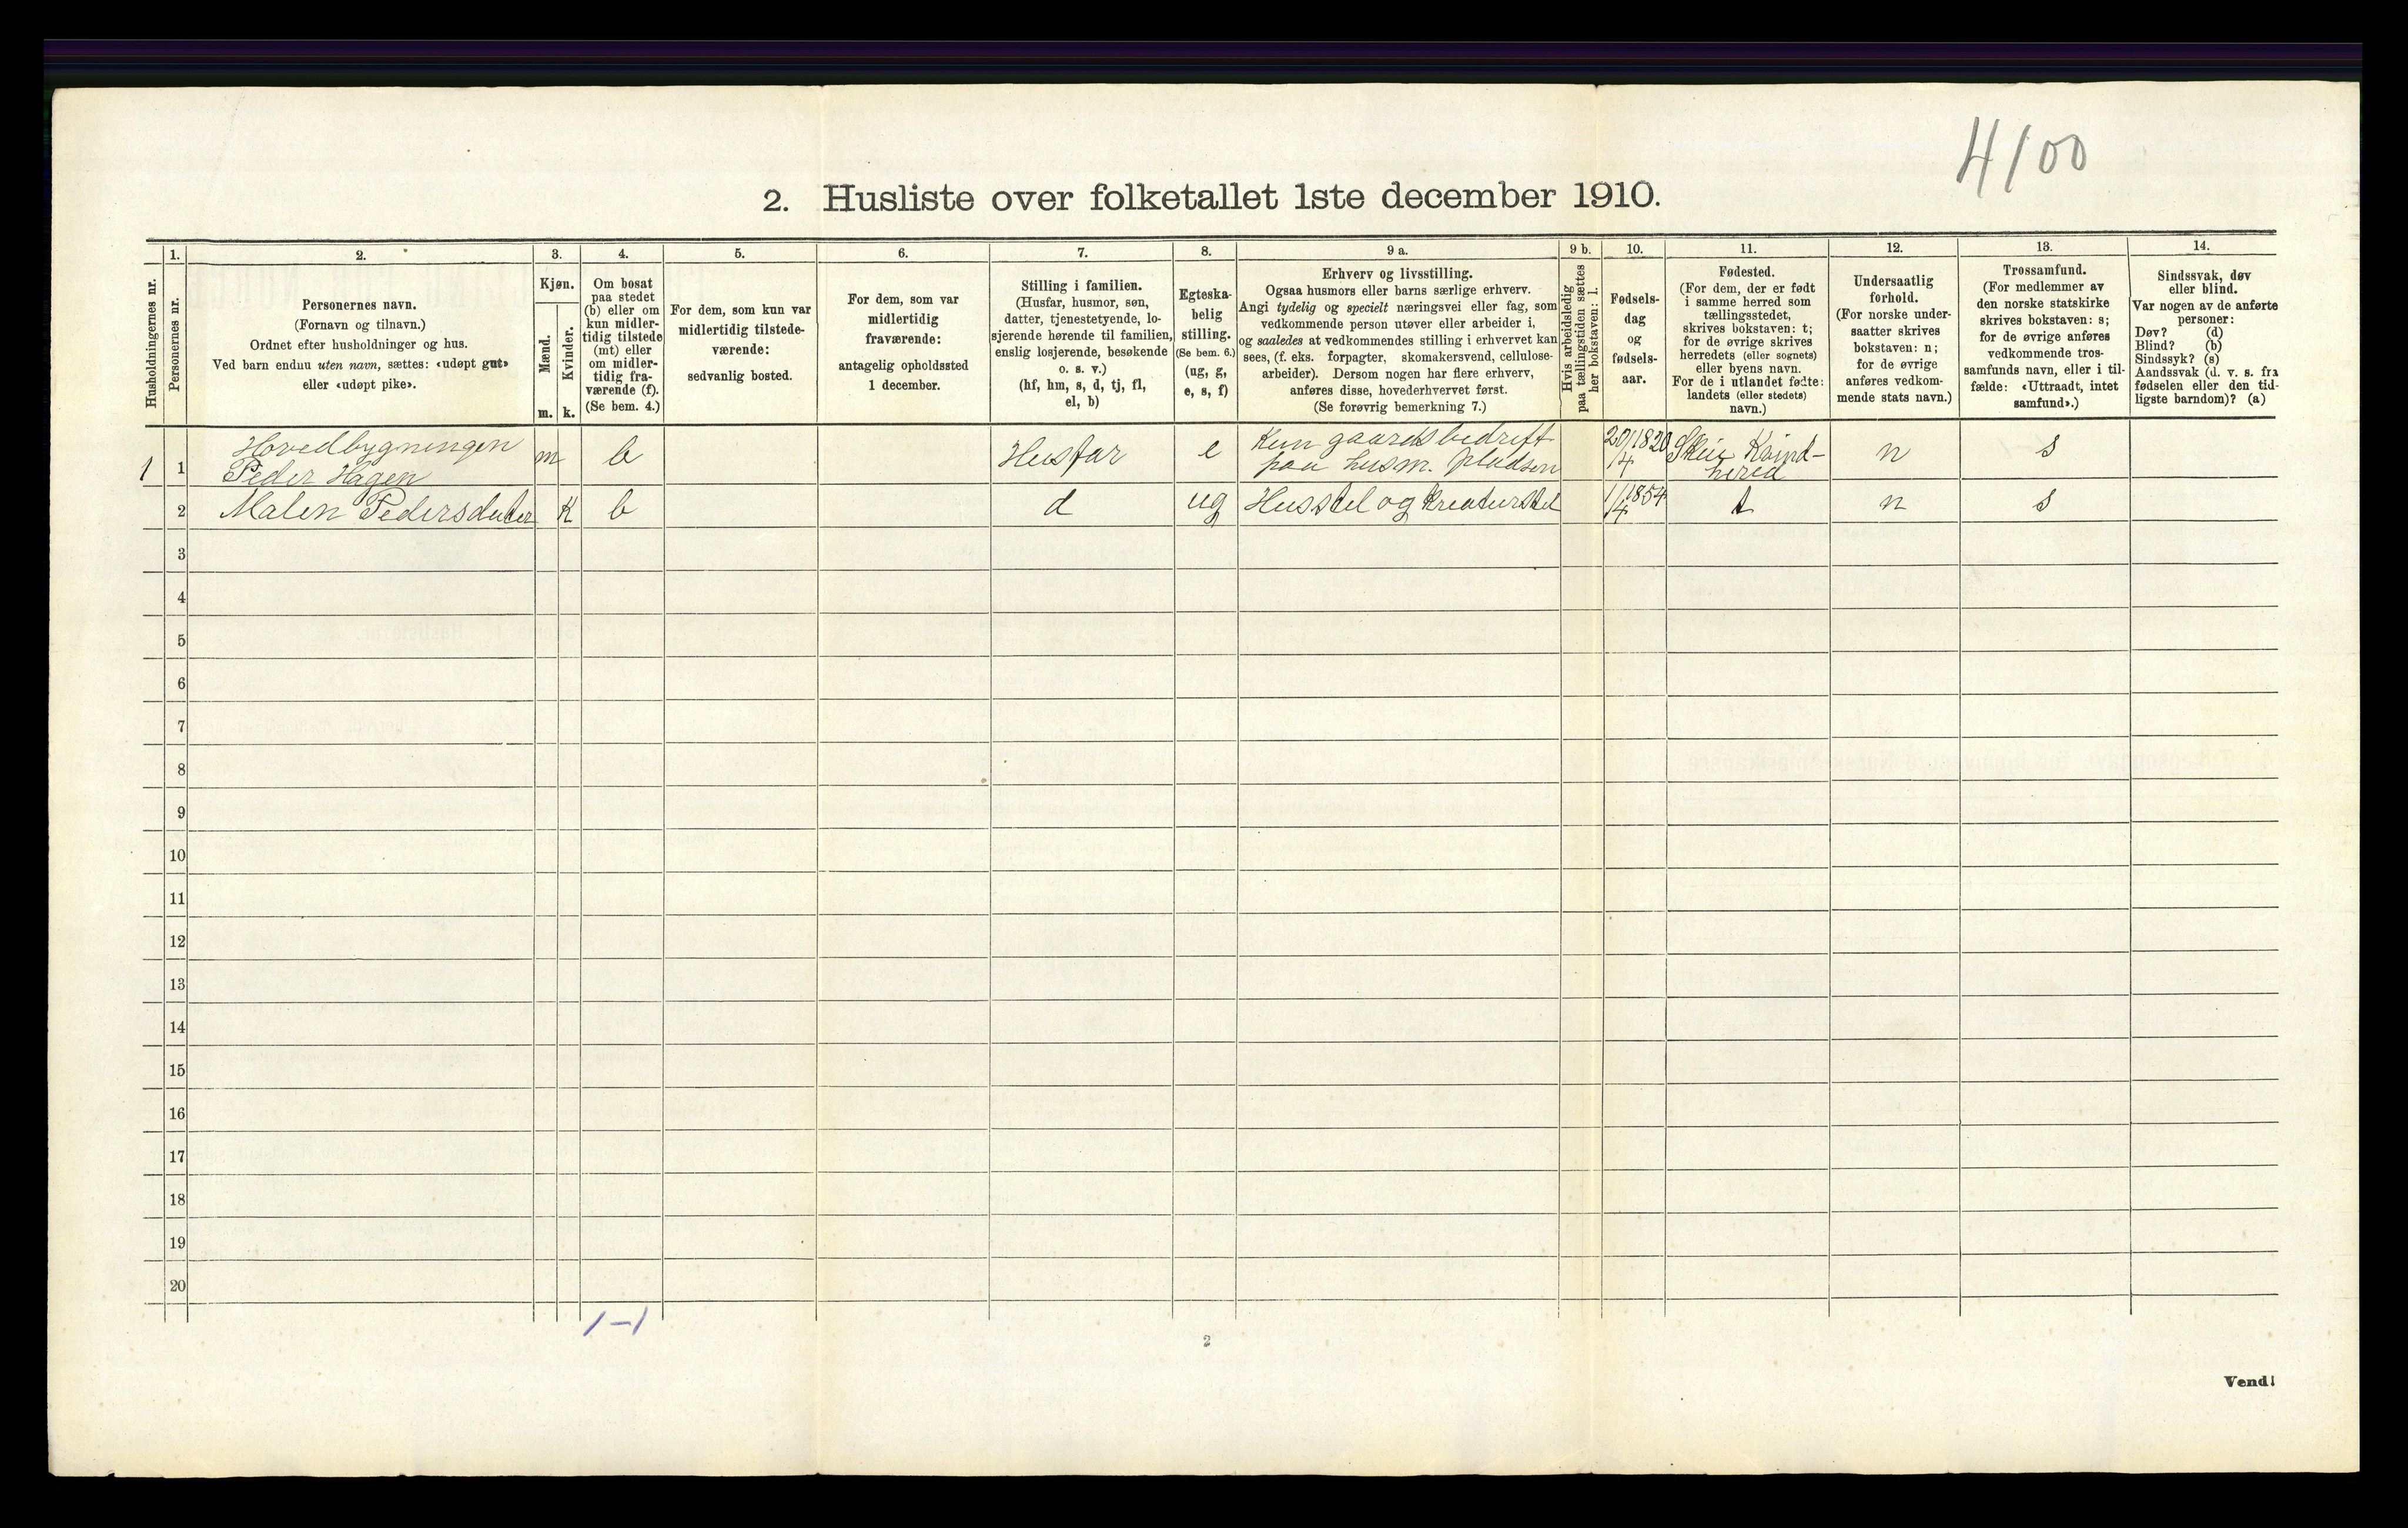 4/00
2. Husliste over folketallet 1ste december 1910.
Husholdningernes nr.
1.
Personernes nr.
2.
Personernes navn.
(Fornavn og tilnavn.)
Ordnet efter husholdninger og hus.
Ved barn endnu uten navn, sættes: «udøpt gut»
eller «udøpt pike».
3.
Kjøn.
Mænd.
m.
Kvinder.
k.
4.
Om bosat
paa stedet
(b) eller om
kun midler-
tidig tilstede
(mt) eller
om midler-
tidig fra-
værende (f).
(Se bem. 4.)
5.
For dem, som kun var
midlertidig tilstede-
værende:
sedvanlig bosted.
6.
For dem, som var
midlertidig
fraværende:
antagelig opholdssted
1 december.
7.
Stilling i familien.
(Husfar, husmor, søn,
datter, tjenestetyende, lo-
sjerende hørende til familien,
enslig losjerende, besøkende
o. s. v.)
(hf, hm, s, d, tj, fl,
el, b)
8.
Egteska-
belig
stilling.
(Se bem. 6.)
(ug, g,
e, s, f)
9 a.
Erhverv og livsstilling.
Ogsaa husmors eller barns særlige erhverv.
Angi tydelig og specielt næringsvei eller fag, som
vedkommende person utøver eller arbeider i,
og saaledes at vedkommendes stilling i erhvervet kan
sees, (f. eks. forpagter, skomakersvend, cellulose-
arbeider). Dersom nogen har flere erhverv,
anføres disse, hovederhvervet først.
(Se forøvrig bemerkning 7.)
9 b.
Hvis arbeidsledig
paa tællingstiden sættes
her bokstaven: l.
10.
Fødsels-
dag
og
fødsels-
aar.
11.
Fødested.
(For dem, der er født
i samme herred som
tællingsstedet,
skrives bokstaven: t;
for de øvrige skrives
herredets (eller sognets)
eller byens navn.
For de i utlandet fødte:
landets (eller stedets)
navn.)
12.
Undersaatlig
forhold.
(For norske under-
saatter skrives
bokstaven: n;
for de øvrige
anføres vedkom-
mende stats navn.)
13.
Trossamfund.
(For medlemmer av
den norske statskirke
skrives bokstaven: s;
for de øvrige anføres
vedkommende tros-
samfunds navn, eller i til-
fælde: «Uttraadt, intet
samfund».)
14.
Sindssvak, døv
eller blind.
Var nogen av de anførte
personer:
Døv? (d)
Blind? (b)
Sindssyk? (s)
Aandssvak (d. v. s. fra
fødselen eller den tid-
ligste barndom)? (a)
Hovedbygningen
1 1 Peder Hagen m b Husfar e Kun gaardsbedrift
paa husm. pladsen 20/4 1820 Kvind-
hered n s
2 Malen Pedersdatter K b d ug Husstel og Kreaturstel 1/4 1854 t n s
3
4
5
6
7
8
9
10
11
12
13
14
15
16
17
18
19
20
1-1
2
Vend!